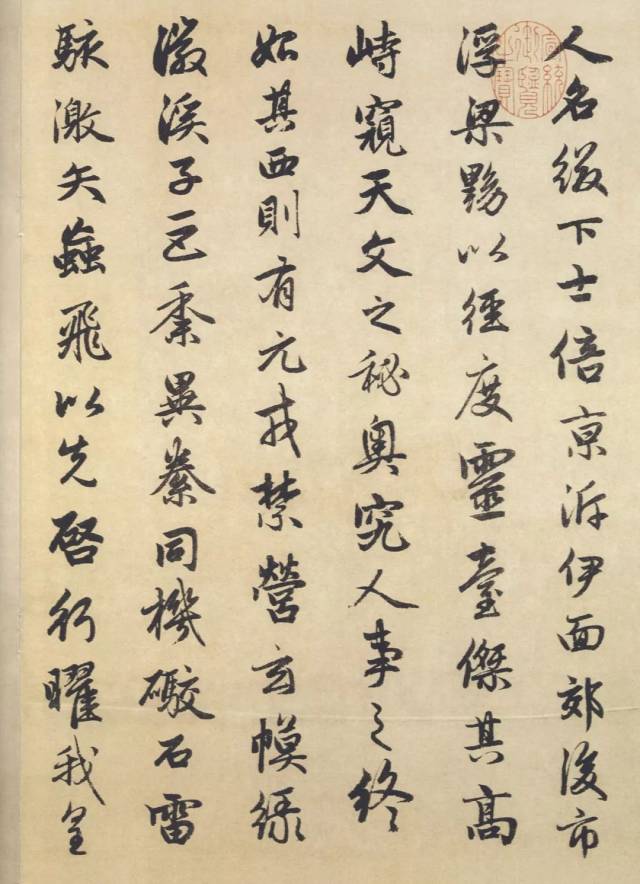 人名綴下士倍亰泝伊面郊後市
浮梁黝以徑度靈臺傑其高
峙窺天文之秘奥究人事之終
始其西則有元戎禁營玄幙綠
徽溪子巨黍異絭同機礮石雷
駭激矢蝱飛以先啓行曜我皇
宣統御覽之寶